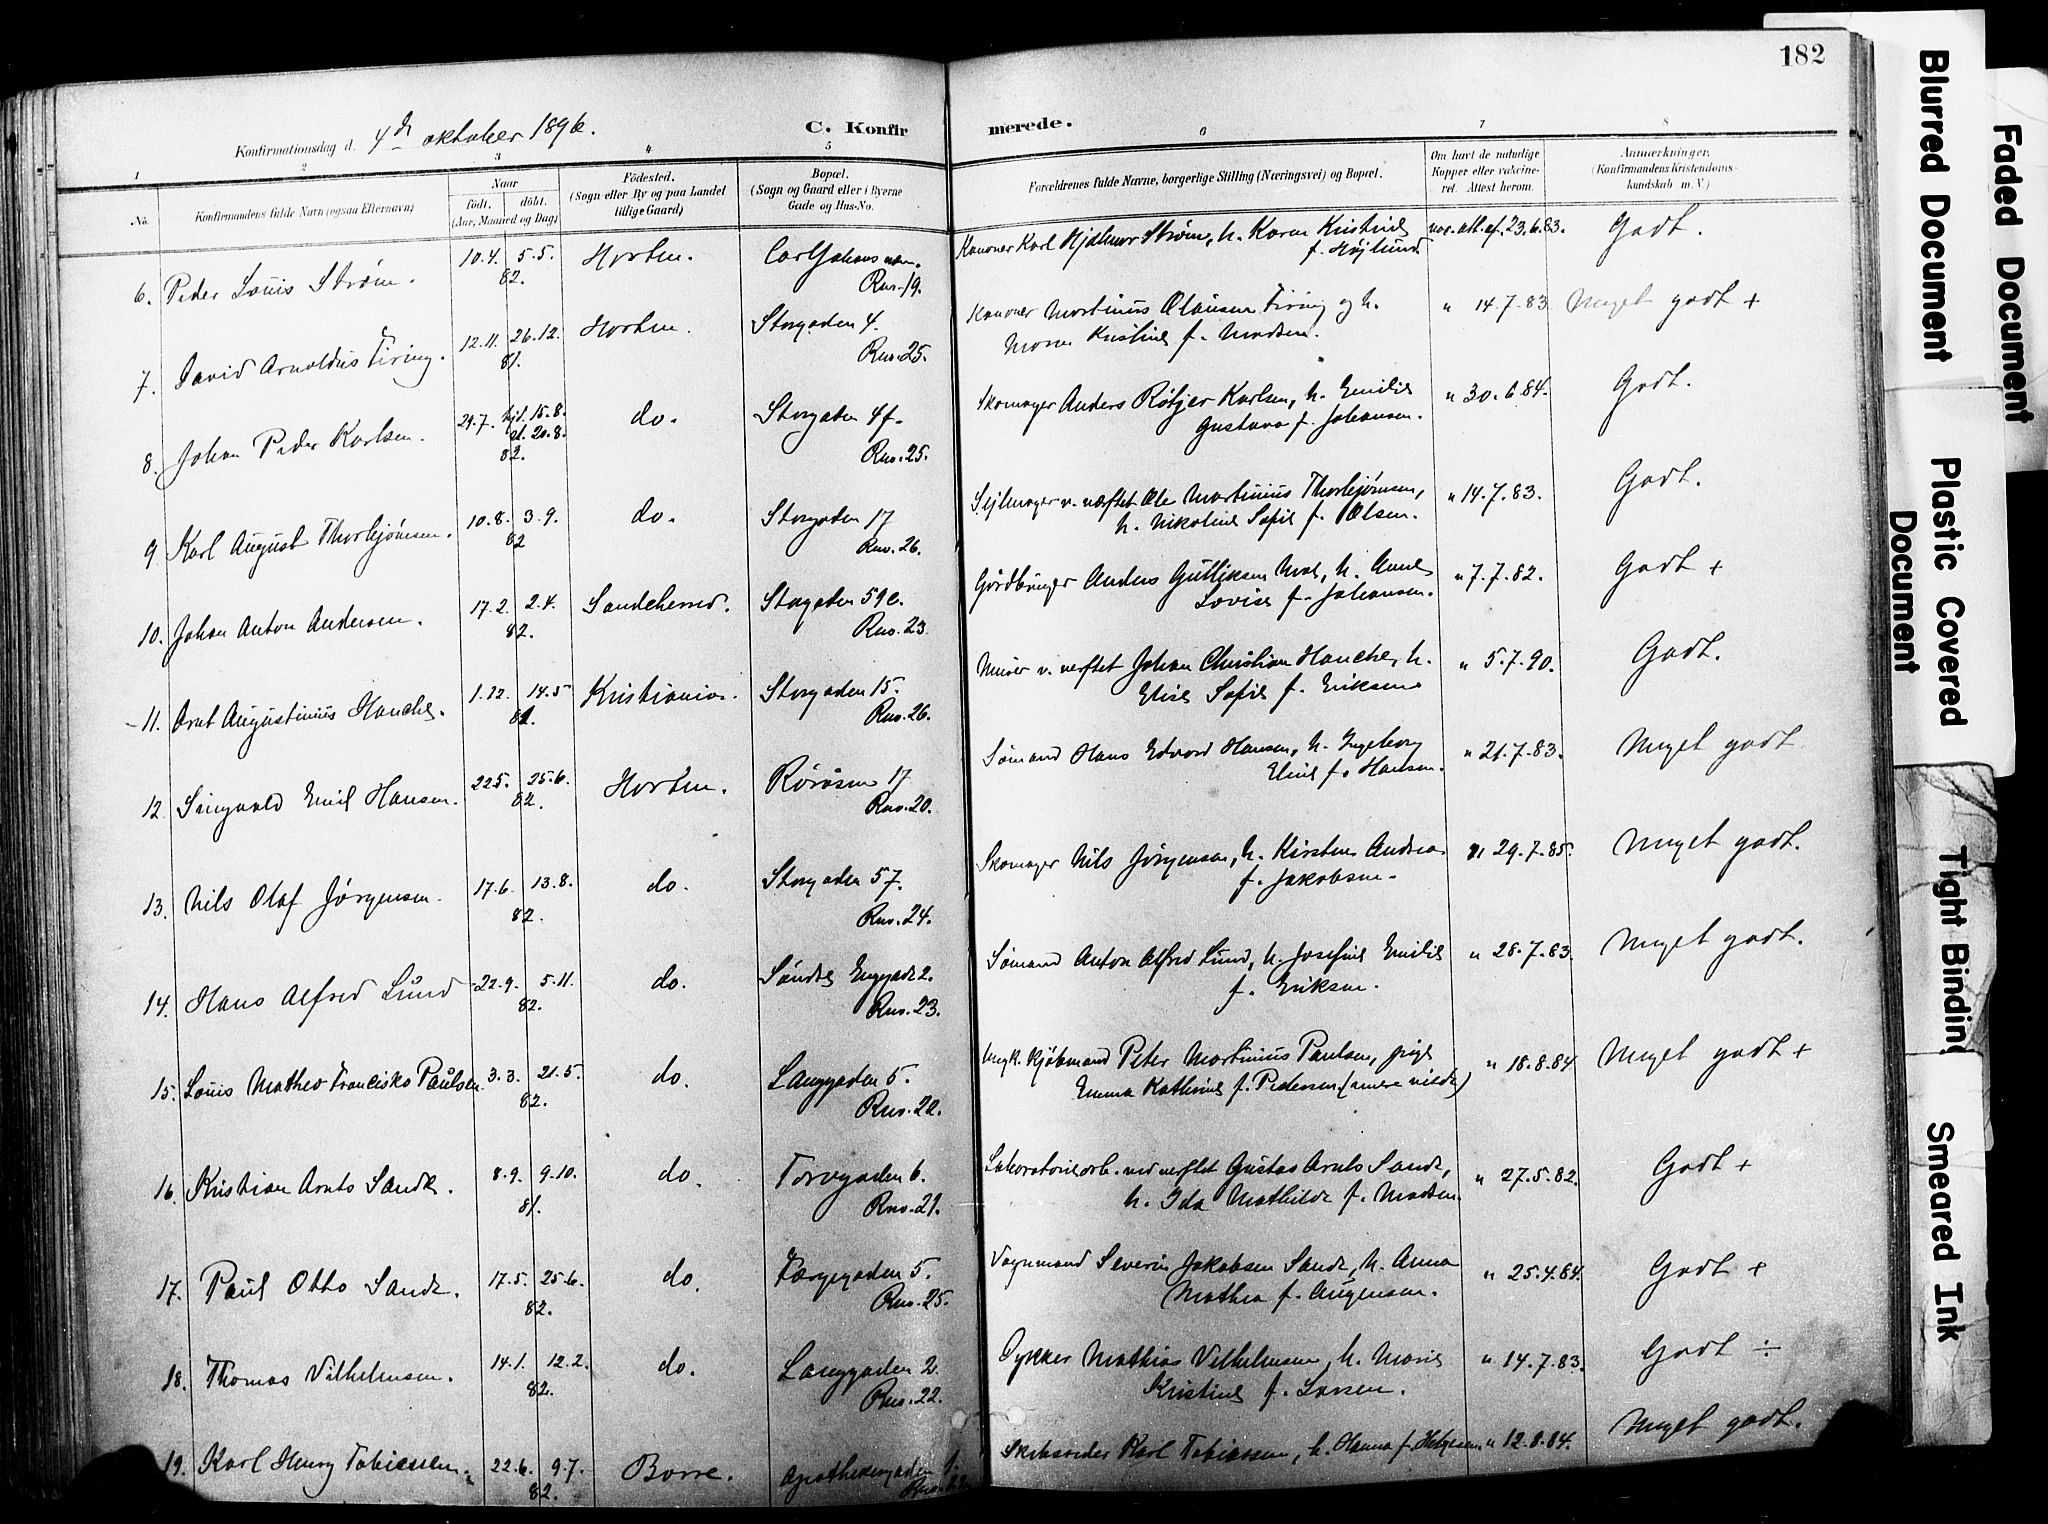 182
Konfirmationsdag d. 4de oktober 1896.
C. Konfirmerede.
1 2 3 4 5 6 7 8
No. Konfirmandens fulde Navn (ogsaa Efternavn) Naar født, døbt. (Aar, Maaned og Dag) Fødested. (Sogn eller By og paa Landet tillige Gaard) Bopæl. (Sogn og Gaard eller i Byerne Gade og Hus-No. Forældrenes fulde Navne, borgerlige Stilling (Næringsvei) og Bopæl. Om havt de naturlige Kopper eller vaccineret. Attest herom. Anmærkninger. (Konfirmandens Kristendomskundskab m. V.)
6. Peder Louis Strøm. 10.4. 5.5. 82. Horten. Carl Johans Rno. 19. Kanoner Karl Hjalmar Strøm, h. Karen Kristine f. Højlund vac. att. af. 23.6.83. Godt.
7. David Arnoldus Firing. 12.11. 26.12. 81. Horten. Storgaden 4. Rno. 25. Kanoner Martinius Olausen Firing og h. Maren Kristine f. Madsen. " 14.7.83 Meget godt +
8. Johan Peder Karlsen. 29.7. hj. 15.8. 20.8. 82. do. Storgaden 4f. Rno. 25. Skomager Anders Karlsen, h. Emilie Gustava f. Johansen. " 30.6.84. Godt.
9 Karl August Thorbjørnsen. 10.8. 3.9. 82 do. Storgaden 17 Rno. 26. Sejlmager v. værftet Ole Martinius Thorbjørnsen, h. Nikoline Sofie f. Olsen. " 14.7.83. Godt.
10. Johan Anton Andersen. 17.2. 2.4. 82. Sandeherred. Storgaden 51e. Rno. 23. Gördbruger Anders Gulliksen, h. Anne Lovise f. Johansen. " 7.7.82. Godt +
11. Arnt Augustinius Hanche. 1.12. 14.5 Kristiania. Storgaden 15. Rno. 26. Murer v. verftet Johan Christian Hanche, h. Elise Sofie f. Eriksen " 5.7.90. Godt.
12. Singvald Emil Hansen. 22.5. 25.6. 82. Horten. Rørosen 17 Rno. 20. Sømand Hans Edvard Hansen, h. Ingeborg Eline f. Hansen. " 21.7.83. Meget godt
13. Nils Olaf Jørgensen. 17.6. 13.8. 82. do. Storgaden 57. Rno. 24. Skomager Nils Jørgensen, h. Kirsten Andrea f. Jakobsen. " 29.7.85. Meget godt.
14. Hans Alfred Lund 22.9. 5.11. 82. do. Søndre Enggade 2. Rno. 23. Sømand Anton Alfred Lund, h. Josefine Emilie f. Eriksen. " 28.7.83. Meget godt.
15. Louis Matheo Francisko Paulsen. 3.3. 21.5. 82. do. Langgaden 5. Rno. 22. Ungk. Kjøbmand Peter Martinius Paulsen, pige Emma Kathrine f. Pedersen " 18.8.84 Meget godt +
16. Kristian Arnts Sande. 8.9. 9.10. 81. do. Torvgaden 6. Rno. 21. Laboratoriearb. ved verftet Gustav Arnts Sande, h. Ida Mathilde f. Madsen. " 27.5.82. Godt +
17. Paul Otto Sande. 17.5. 25.6. 82. do. Færgegaden 5. Rno. 25. Vognmand Severin Jakobsen Sande, h. Anna Mathea f. Augensen. " 25.4.84. Godt +
18. Thomas Vilhelmsen. 14.1. 12.2. 82. do. Langgaden 2 Rno. 22. Dykker Mathias Vilhelmsen, h. Marie Kristine f. Larsen. " 14.7.83. Godt ÷
19. Karl Henry Tobiassen. 22.6. 9.7. 82. Borre. Apothekergaden 1. Rno. Skibsreder Karl Tobiassen, h. Hanna f. Helgesen " 12.8.84. Meget godt.
Blurred Document
Faded Document
Plastic Covered Document
Tight Binding
Smeared Ink